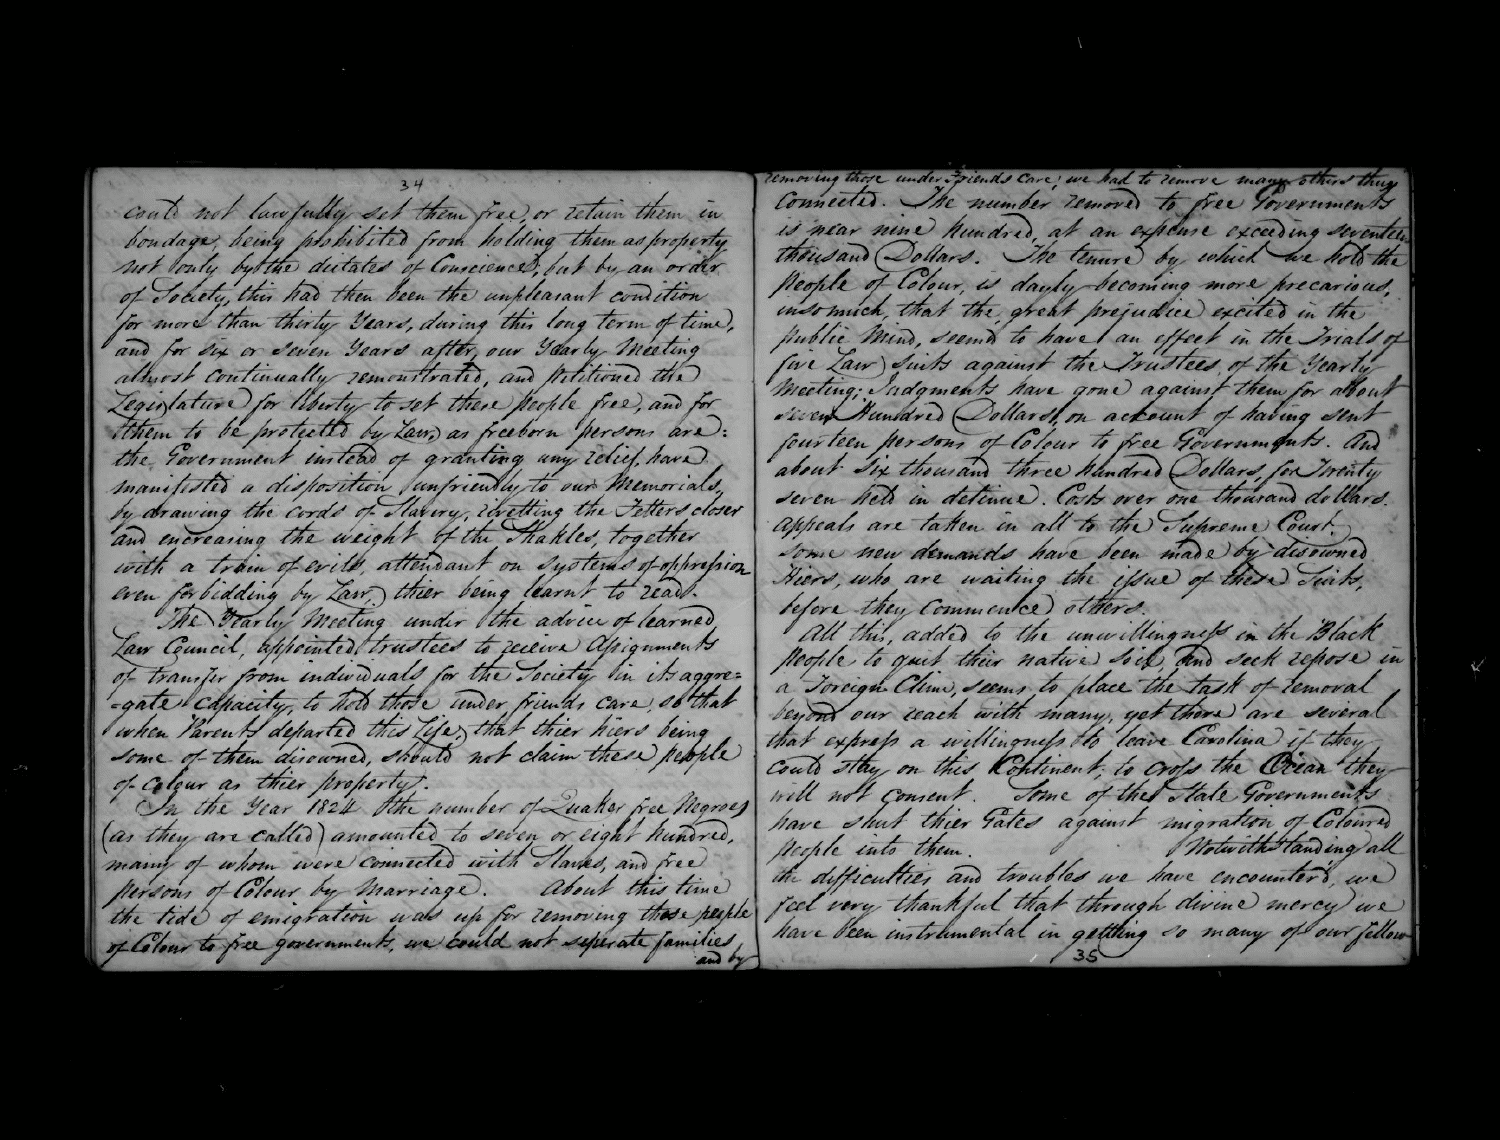 34
could not lawfully set them free, or retain them in
bondage, being prohibited from holding them as property
not only by the dictates of Conscience, but by an order
of Society, this had then been the unpleasant condition
for more than thirty Years, during this long term of time,
and for six or seven Years after, our Yearly Meeting
almost continually remonstrated, and petitioned the
Legislature for liberty to set these people free, and for
them to be protected by Law, as freeborn persons are:
the Government instead of granting any relief, have
manifested a disposition unfriendly to our Memorials,
by drawing the cords of Slavery, rivetting the Fetters closer
and encreasing the weight of the Shakles, together
with a train of evils attendant on Systems of oppression
even forbidding by Law, thier being learnt to read.
The Yearly Meeting under the advice of learned
Law Council, appointed trustees to receive Assignments
of transfer from individuals for the Society in its aggre=
=gate capacity, to hold those under friends care, so that
when Parents departed this Life, that thier hiers being
some of them disowned, should not claim these people
of colour as thier property.
In the Year 1824 the number of Quaker free Negroes
(as they are called) amounted to seven or eight hundred,
many of whom were connected with Slaves, and free
persons of Colour by Marriage. About this time
the tide of emigration was up for removing these people
of Colour to free governments, we could not seperate families
and by
removing those under Friends Care; we had to remove many others thus
Connected. The number removed to free Governments
is near nine hundred, at an expense exceeding seventeen
thousand Dollars. The tenure by which we hold the
People of Colour, is dayly becoming more precarious,
insomuch, that the great prejudice excited in the
public Mind, seem'd to have an effect in the Trials of
five Law Suits against the Trustees of the Yearly
Meeting; Judgments have gone against them for about
seven Hundred Dollars, on account of having sent
fourteen persons of Colour to free Governments. And
about six thousand three hundred Dollars, for Twenty
seven held in detinue. Costs over one thousand dollars.
Appeals are taken in all to the Supreme Court.
Some new demands have been made by disowned
Hiers, who are waiting the issue of these Suits,
before they Commence others.
All this, added to the unwillingness in the Black
People to quit their native Soil, and seek repose in
a Foreign Clime, seems to place the task of removal
beyond our reach with many, yet there are several
that express a willingness to leave Carolina if they
could stay on this Continent; to cross the Ocean they
will not consent. Some of the State Governments
have shut thier Gates against migration of Coloured
People into them. Notwithstanding all
the difficulties and troubles we have encounter'd, we
feel very thankful that through divine mercy we
have been instrumental in getting so many of our fellow
35